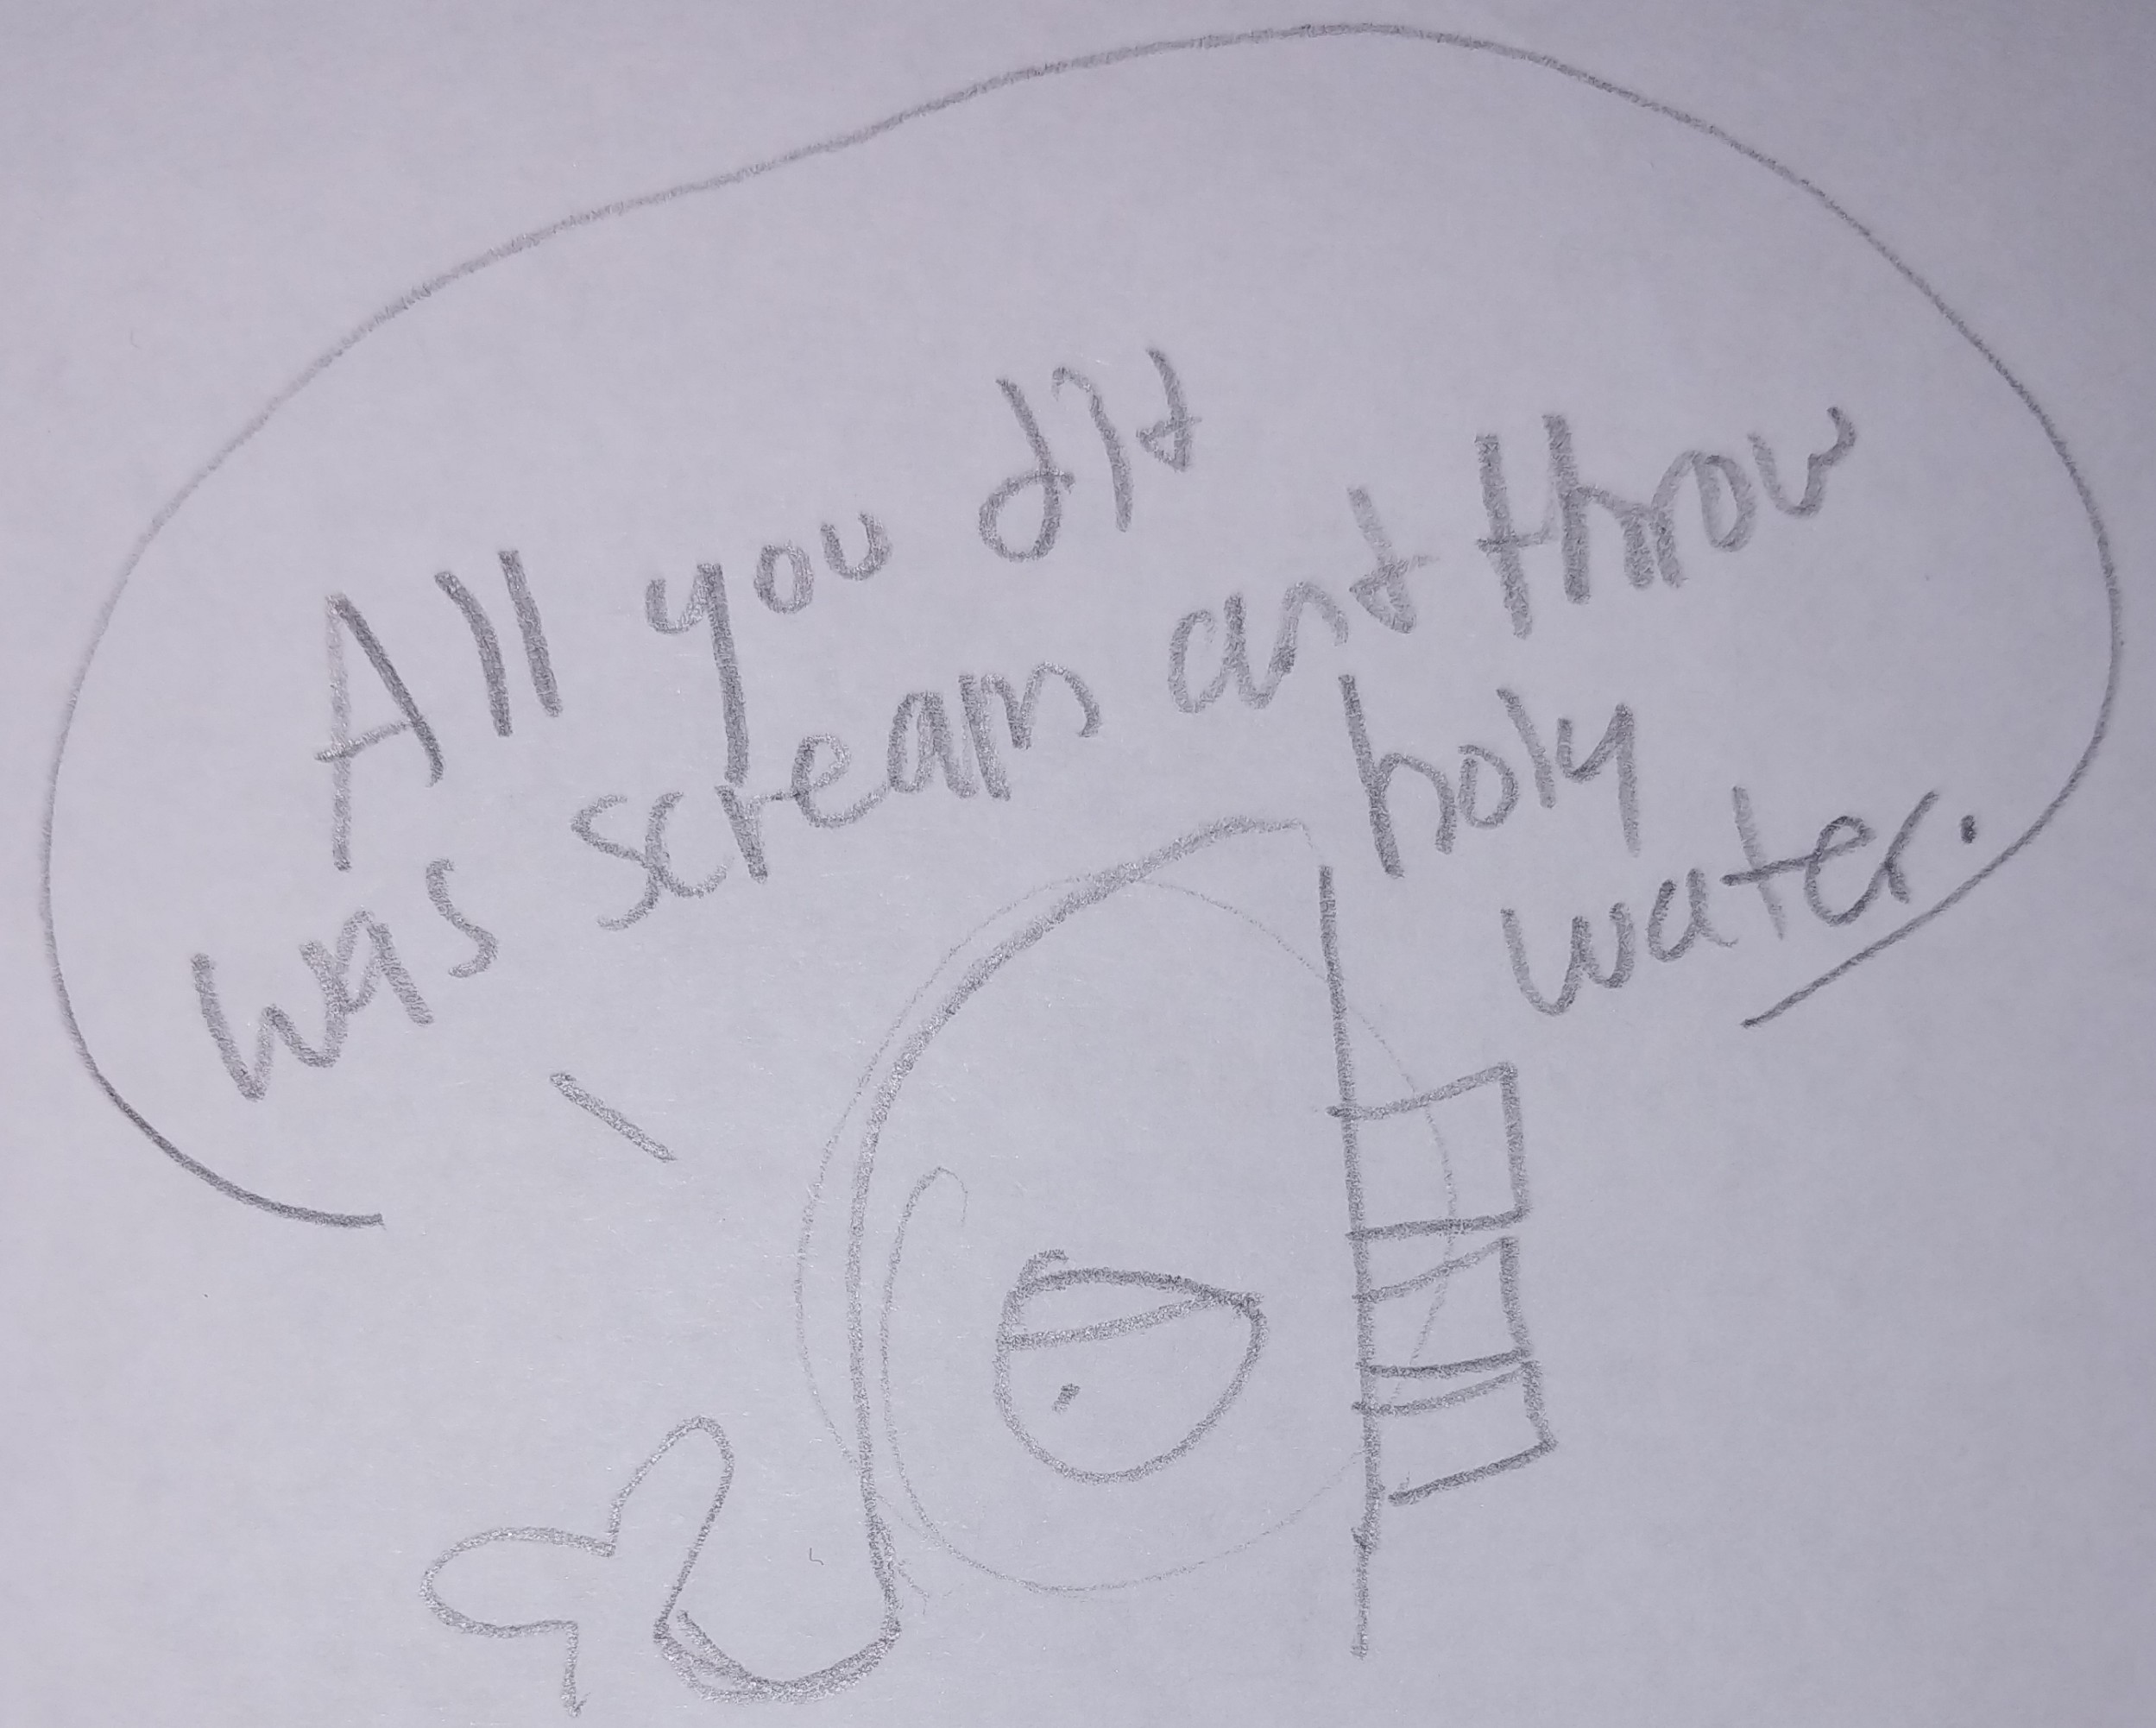 All you did
was scream and throw
holy
water.